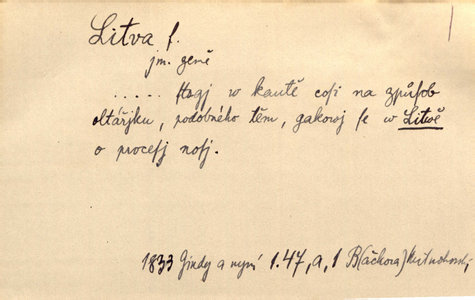 Litva f.
jm. země
..... Stogj w kautě cosi na způsob
oltářjku, podobného těm, gakowj se w Litwě
o procesj nosj.
1833 Gindy a nynj 1.47, a, 1 B(áčkora)